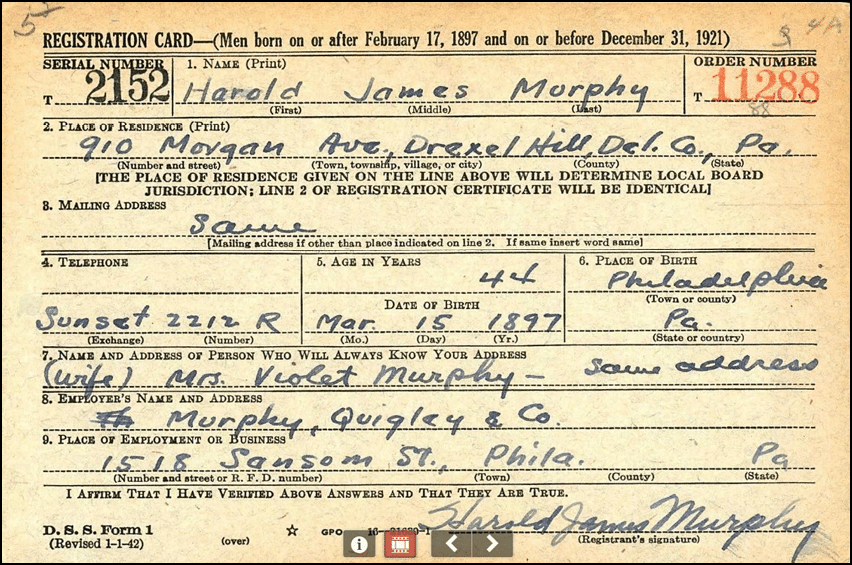 5
4A
REGISTRATION CARD—(Men born on or after February 17, 1897 and on or before December 31, 1921)
SERIAL NUMBER 1. NAME (Print) ORDER NUMBER
T 2152 Harold James Murphy T 11288
(First) (Middle) (Last)
88
2. PLACE OF RESIDENCE (Print)
910 Morgan Ave., Drexel Hill, Del. Co., Pa.
(Number and street) (Town, township, village, or city) (County) (State)
[THE PLACE OF RESIDENCE GIVEN ON THE LINE ABOVE WILL DETERMINE LOCAL BOARD
JURISDICTION; LINE 2 OF REGISTRATION CERTIFICATE WILL BE IDENTICAL]
3. MAILING ADDRESS
Same
[Mailing address if other than place indicated on line 2. If same insert word same]
4. TELEPHONE 5. AGE IN YEARS 6. PLACE OF BIRTH
44 Philadelphia
DATE OF BIRTH (Town or county)
Sunset 2212 R Mar. 15 1897 Pa.
(Exchange) (Number) (Mo.) (Day) (Yr.) (State or country)
7. NAME AND ADDRESS OF PERSON WHO WILL ALWAYS KNOW YOUR ADDRESS
(Wife) Mrs. Violet Murphy — same address
8. EMPLOYER'S NAME AND ADDRESS
Murphy, Quigley & Co.
9. PLACE OF EMPLOYMENT OR BUSINESS
1518 Sansom St., Phila. Pa
(Number and street or R. F. D. number) (Town) (County) (State)
I AFFIRM THAT I HAVE VERIFIED ABOVE ANSWERS AND THAT THEY ARE TRUE.
Harold James Murphy
D. S. S. Form 1 GPO
(Revised 1-1-42) (over) (Registrant's signature)